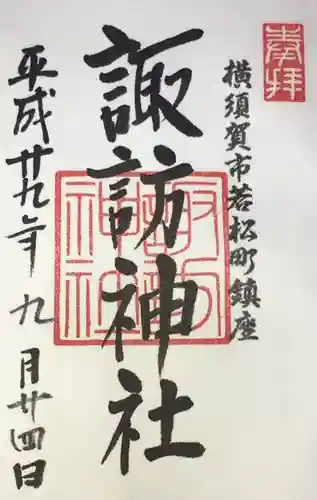 奉拝
横須賀市若松町鎮座
諏訪神社
諏訪神社
平成廿九年九月廿四日